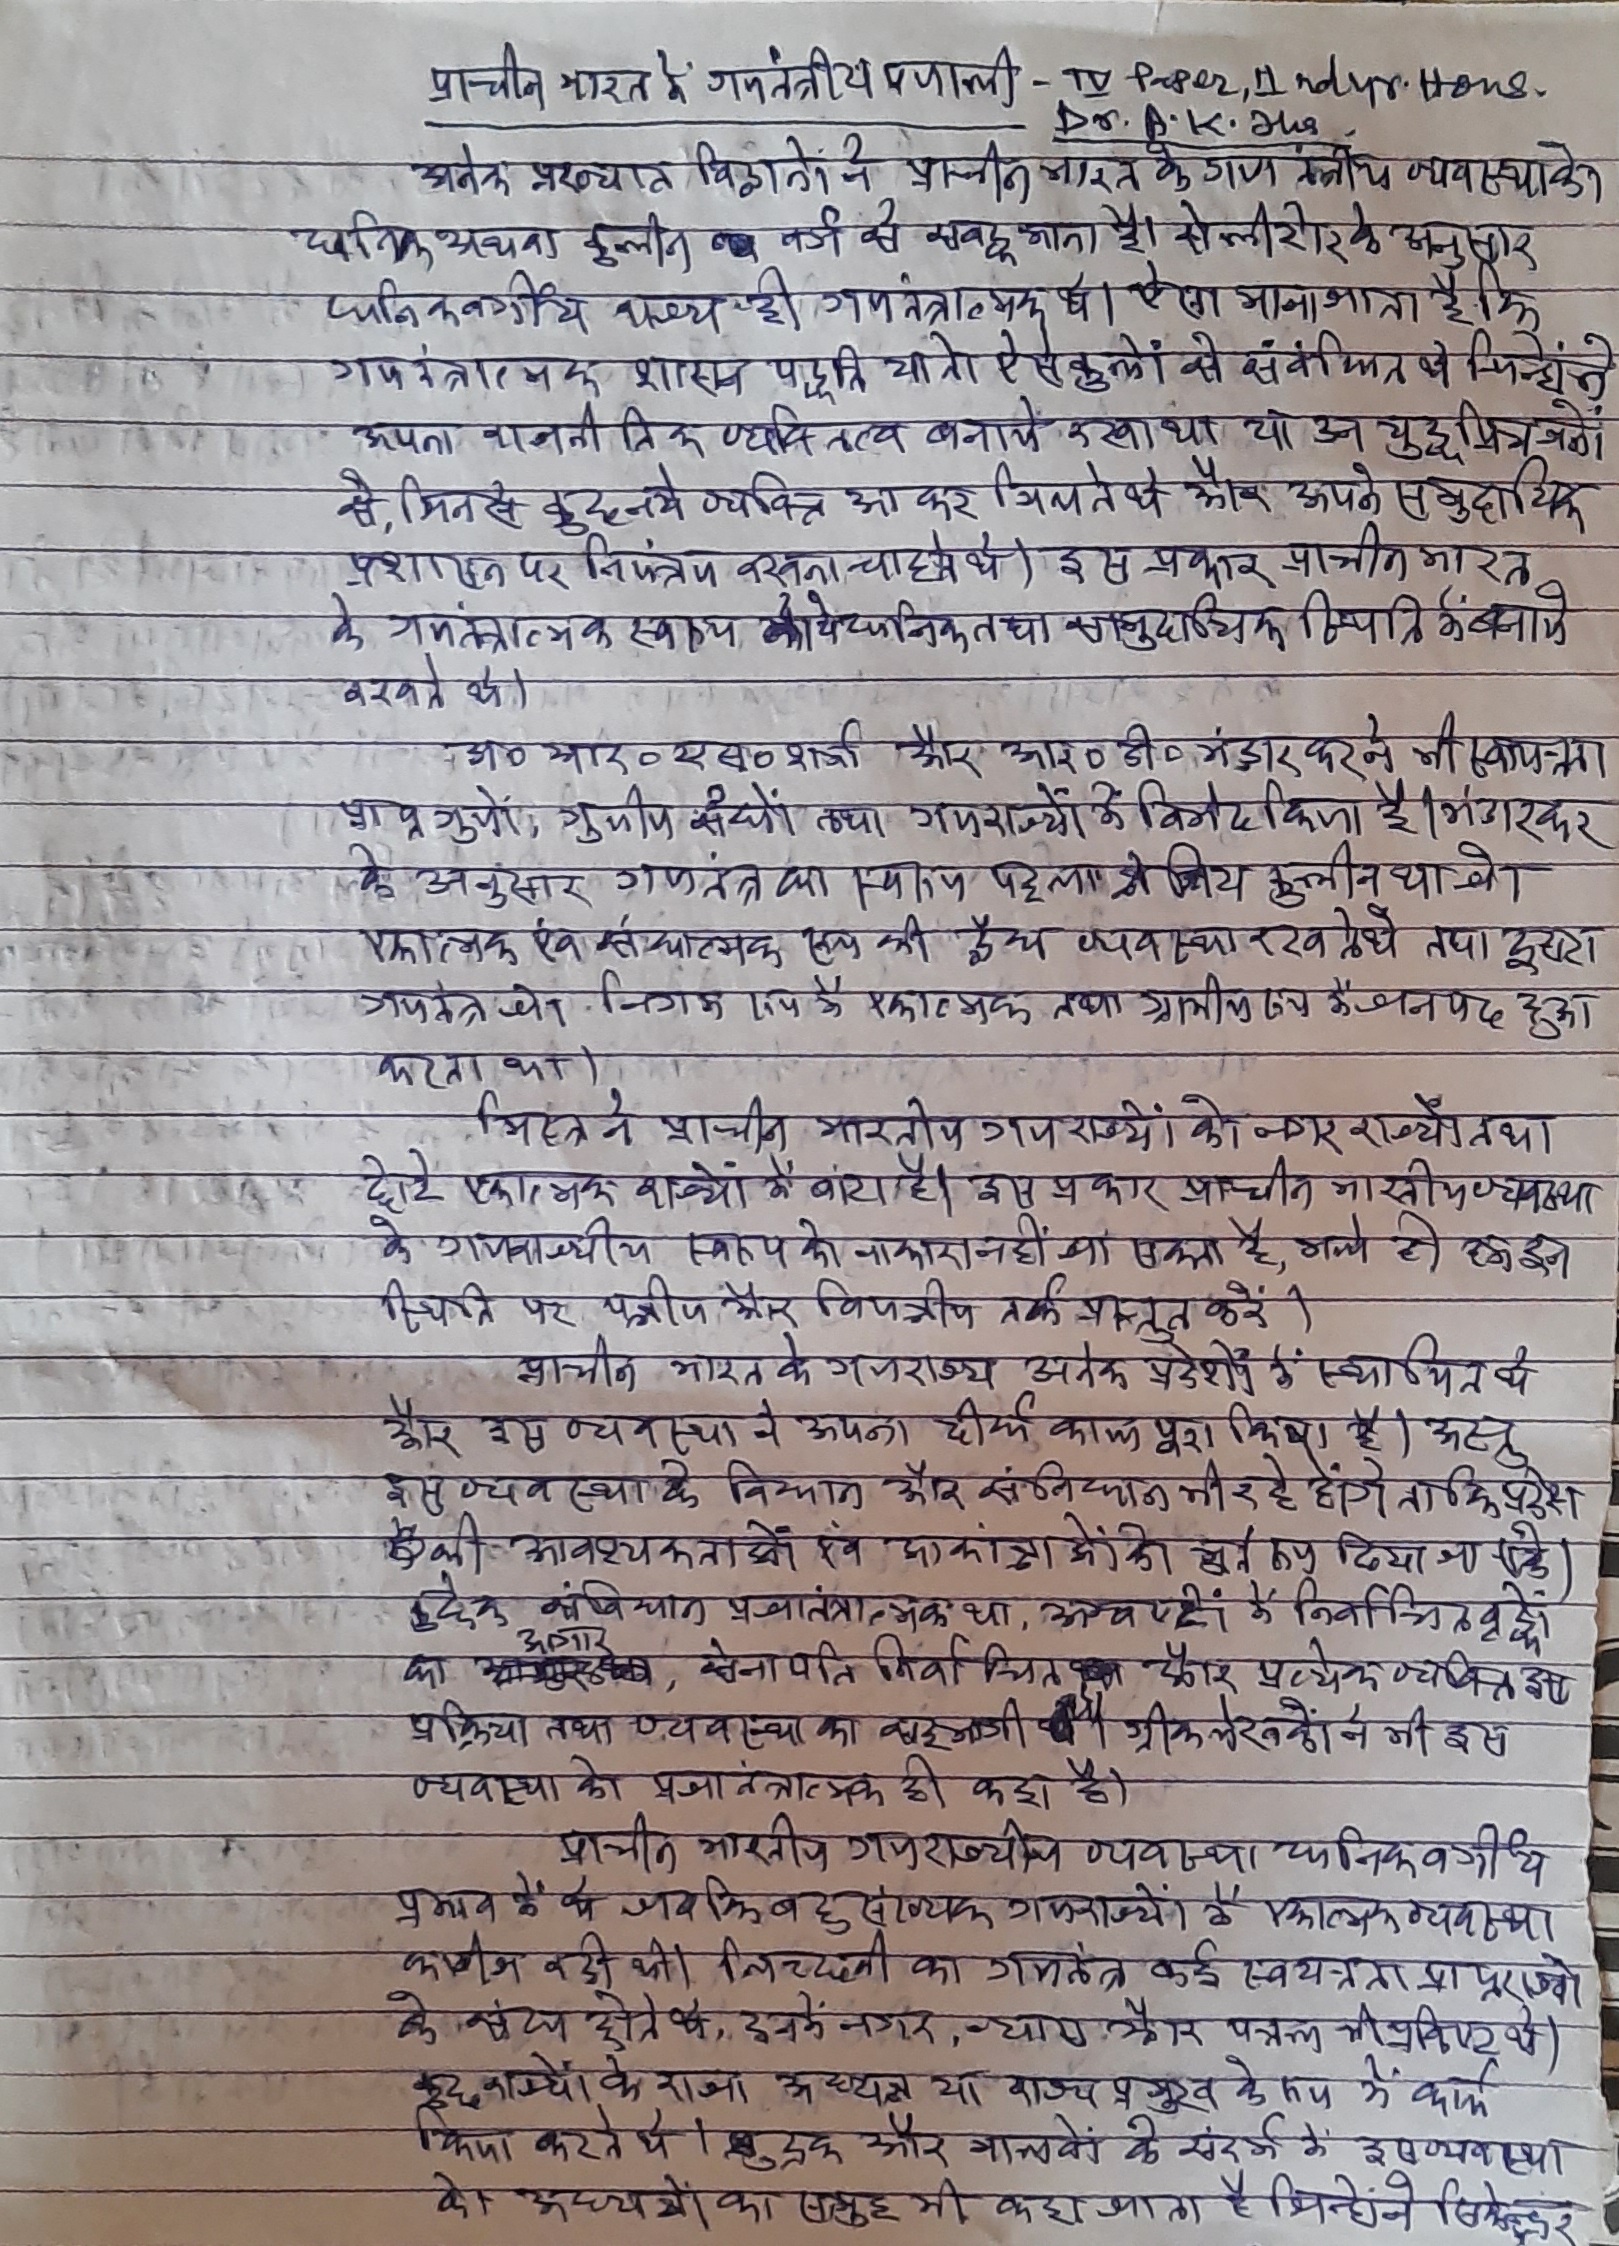 प्राचीन भारत में गणतंत्रीय प्रणाली - IV Paper, II nd yr. Hons.
Dr. A. K. Jha
अनेक प्रख्यात विद्वानों ने प्राचीन भारत के गणतंत्रीय व्यवस्था को
धनिक अथवा कुलीन वर्ग से सबद्ध माना है। सेलीटोर के अनुसार
धनिकवर्गीय राज्य ही गणतंत्रात्मक थे। ऐसा माना जाता है कि
गणतंत्रात्मक शासन पद्धति या तो ऐसे कुलों से संबंधित थे जिन्होंने
अपना राजनीतिक व्यक्तित्व बनाये रखा था या उन युद्धप्रिय जनों
से, जिनसे कुछ नये व्यक्ति आ कर मिलते थे और अपने समुदायिक
प्रशासन पर नियंत्रण रखना चाहते थे। इस प्रकार प्राचीन भारत
के गणतंत्रात्मक स्वरूप को ये धनिक तथा सामुदायिक स्थिति में बनाये
रखते थे।
आर० एस० शर्मा और आर० डी० भंडारकर ने भी स्वायत्तता
प्राप्त गुणों, गुणीय संघों तथा गणराज्यों में विभेद किया है। भंडारकर
के अनुसार गणतंत्र का स्वरूप पहला क्षत्रिय कुलीन था जो
एकात्मक एवं संघात्मक रूप की द्वैध व्यवस्था रखते थे तथा दूसरा
गणतंत्र जो निगम रूप में एकात्मक तथा ग्रामीण रूप में जनपद हुआ
करता था।
मिस्त्र ने प्राचीन भारतीय गणराज्यों को नगर राज्यों तथा
छोटे एकात्मक राज्यों में बांटा है। इस प्रकार प्राचीन भारतीय व्यवस्था
के गणराज्यीय स्वरूप को नाकारा नहीं जा सकता है, भले ही हम इन
स्थिति पर पक्षीय और विपक्षीय तर्क प्रस्तुत करें।
प्राचीन भारत के गणराज्य अनेक प्रदेशों में स्थापित थे
और इस व्यवस्था ने अपना दीर्घ काल पूरा किया है। अस्तु
इस व्यवस्था के विधान और संविधान भी रहे होंगे ताकि प्रदेश
की आवश्यकताओं एवं आकांक्षाओं को मूर्त रूप दिया जा सके।
कुछेक संविधान प्रजातंत्रात्मक था, अम्बष्टों में निर्वाचित वृद्धों
का आगार, सेनापति निर्वाचित और प्रत्येक व्यक्ति इस
प्रक्रिया तथा व्यवस्था का सहभागी थे। ग्रीक लेखकों ने भी इस
व्यवस्था को प्रजातंत्रात्मक ही कहा है।
प्राचीन भारतीय गणराज्यीय व्यवस्था धनिकवर्गीय
प्रभाव में थे जबकि बहुसंख्यक गणराज्यों में एकात्मक व्यवस्था
काबीज रही थी। लिच्छवी का गणतंत्र कई स्वयत्तता प्राप्त राज्यों
के संघ होते थे, इनमें नगर, न्याय और पत्तल भी थे।
कुछ राज्यों के राजा अध्यक्ष या राज्य प्रमुख के रूप में कार्य
किया करते थे। क्षुद्रक और मालवों के संदर्भ में इस व्यवस्था
को अध्यक्षों का समूह भी कहा जाता है जिन्होंने सिकन्दर